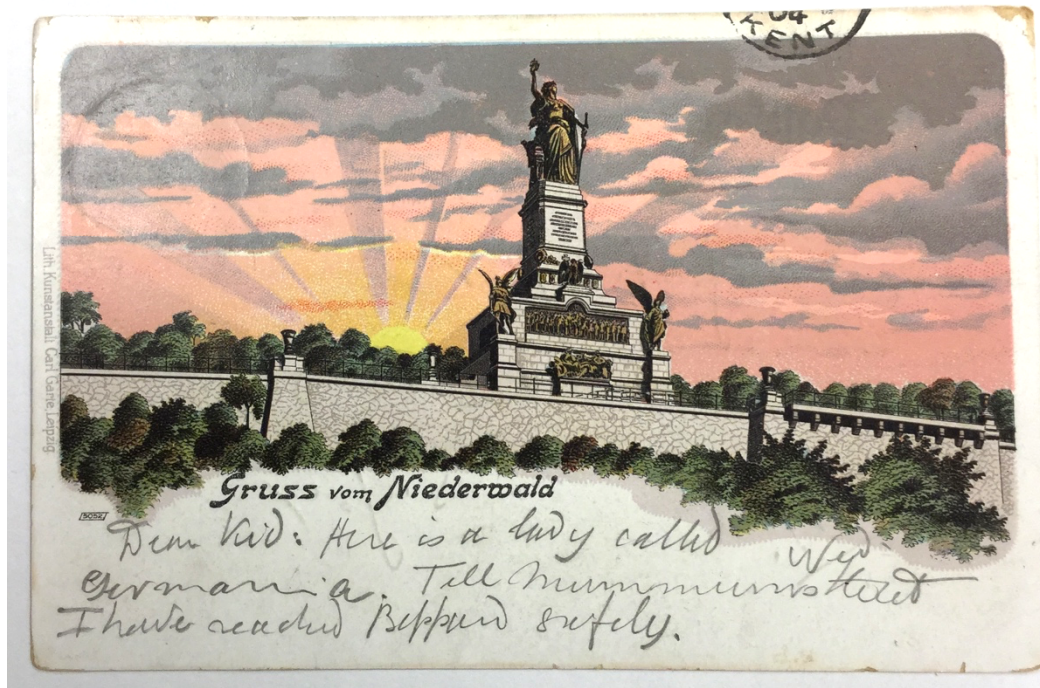 04
KENT
Lith. Kunstanstalt Carl Garte Leipzig
Gruss vom Niederwald
5052
Dear Kid: Here is a lady called
Germania. Tell
I have reached Boppard safely.